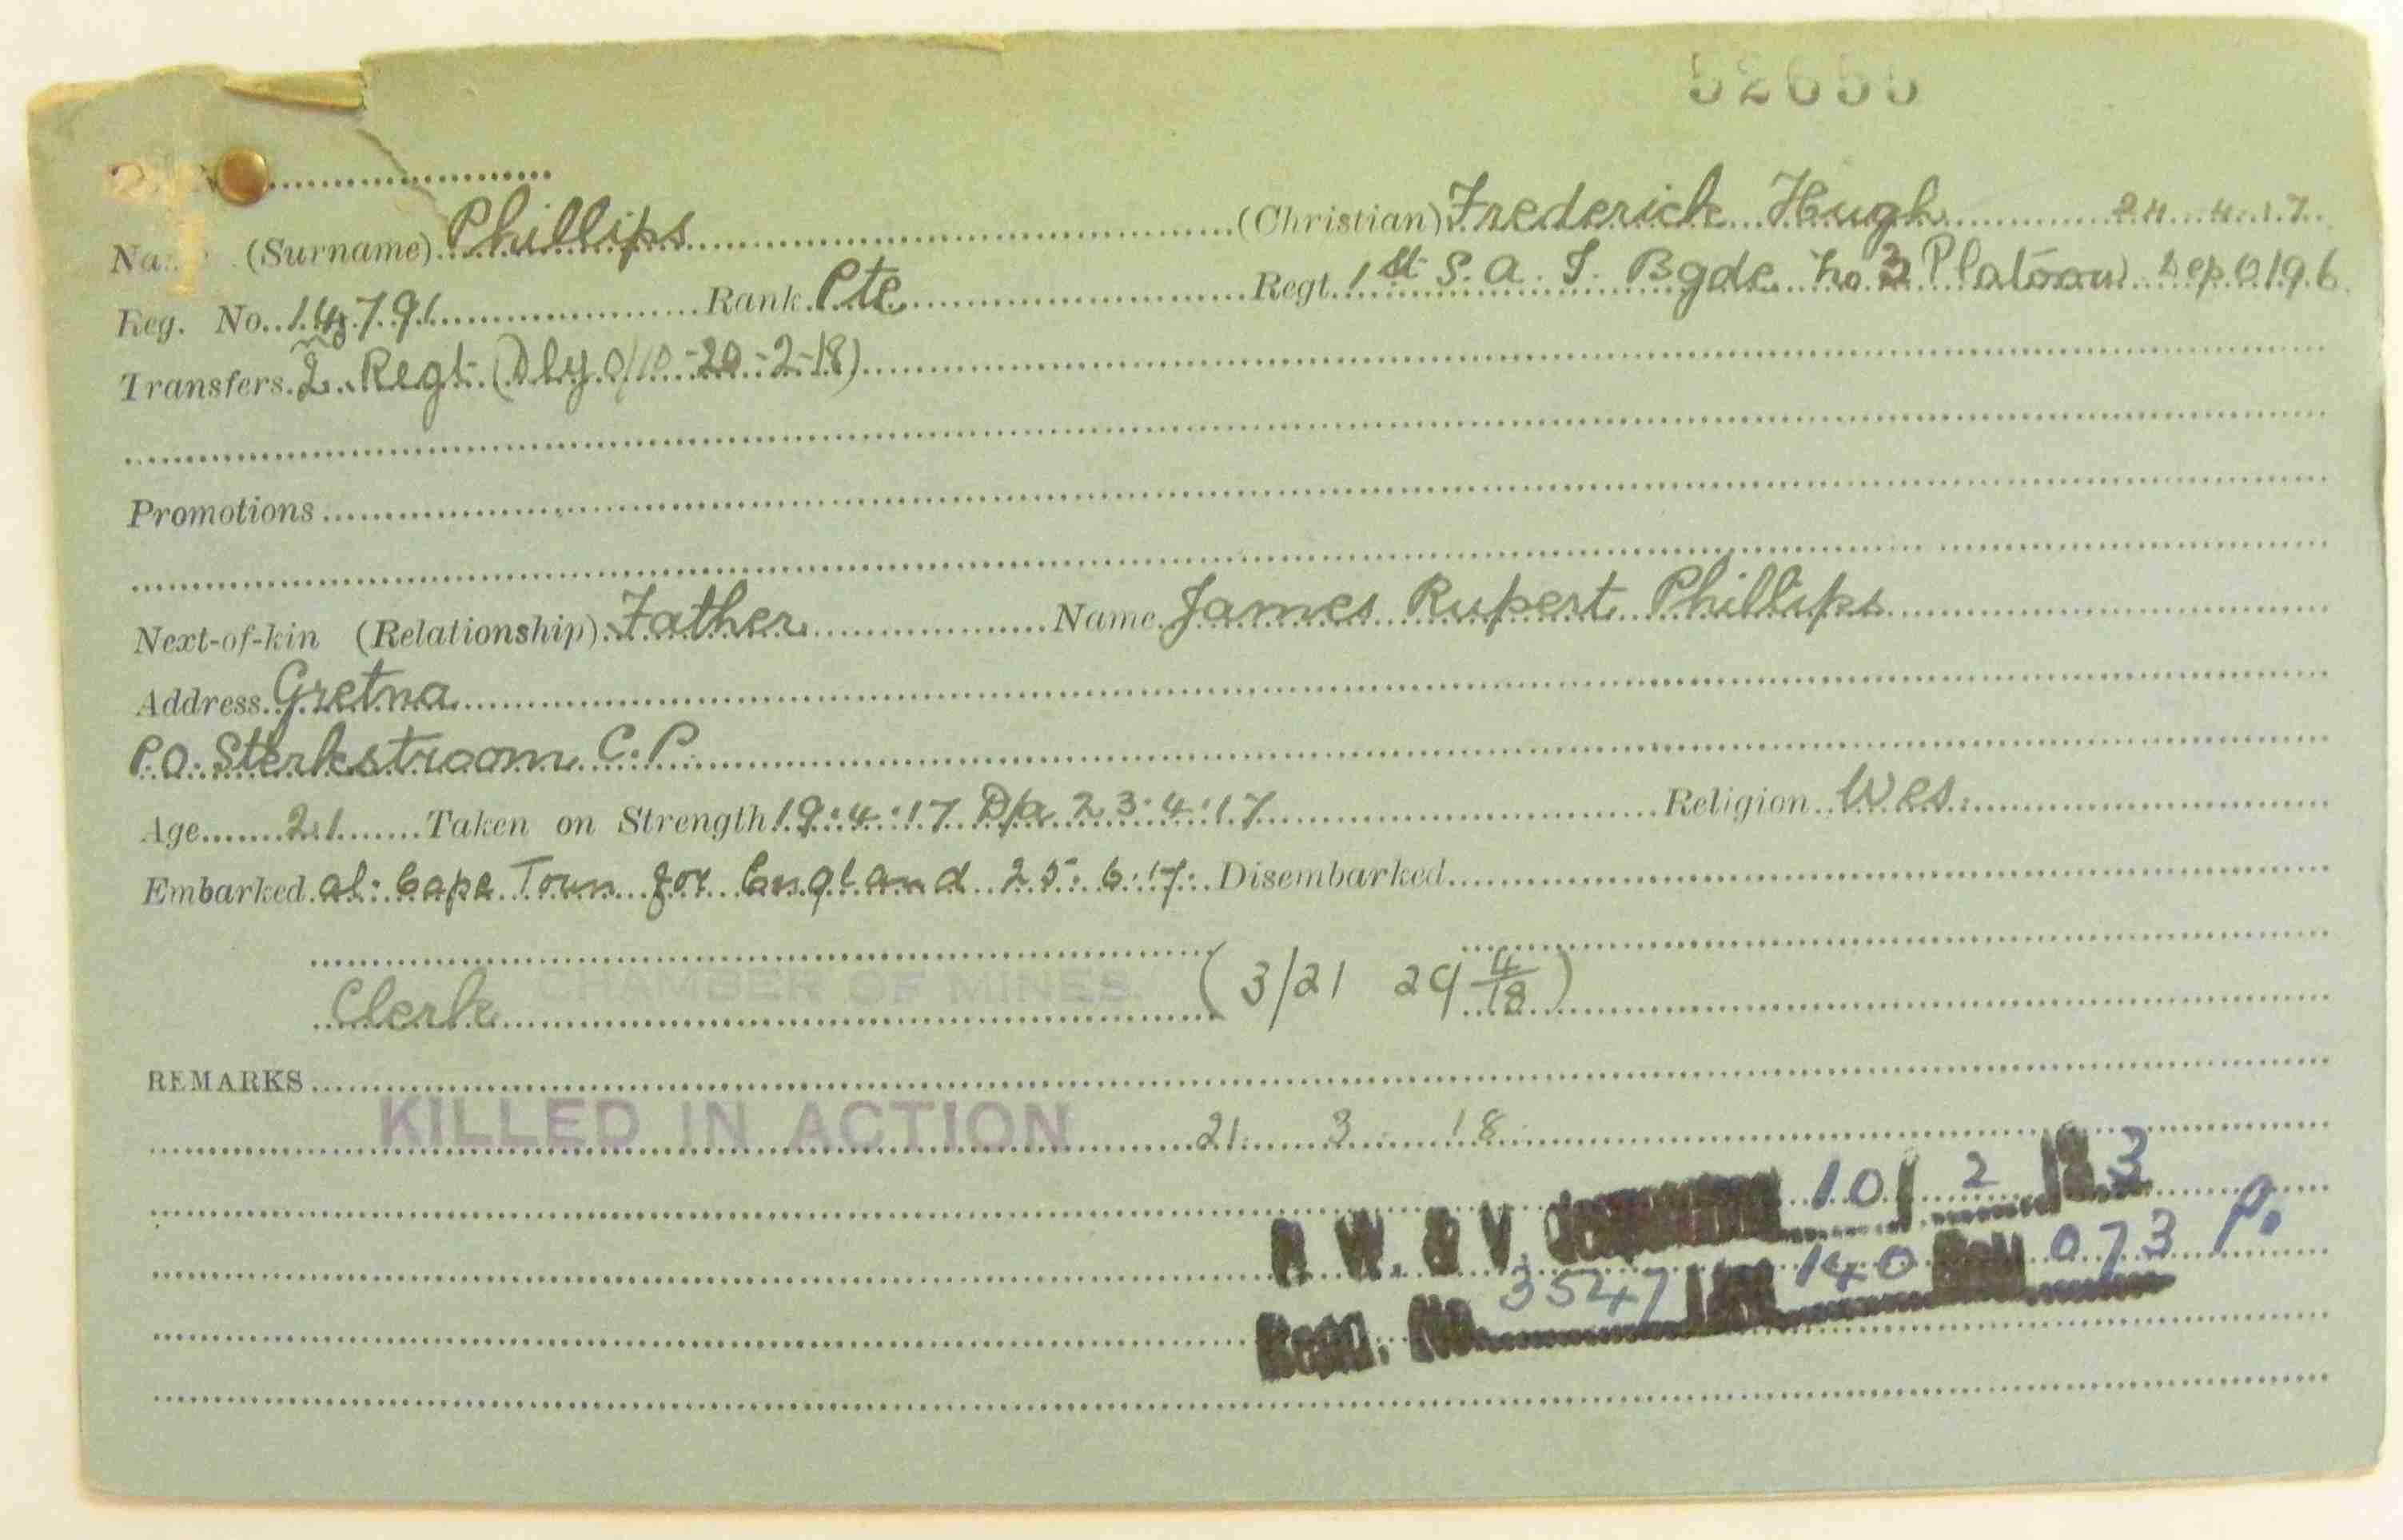 52655
Name (Surname) Phillips (Christian) Frederick Hugh 24.4.17.
Reg. No. 14791 Rank Pte Regt. 1st S.A.I. Bgde No 3 Platoon Dep 0196
Transfers 2nd Regt. (Dly O/10-20-2-18)
Promotions
Next-of-kin (Relationship) Father Name James Rupert Phillips
Address Gretna
P.O. Sterkstroom C.P.
Age 21 Taken on Strength 19:4:17 D/a 23:4:17 Religion Wes:
Embarked at: Cape Town for England 25:6:17. Disembarked
CHAMBER OF MINES.
Clerk (3/21 29 4/18)
REMARKS
KILLED IN ACTION 21 3 18
B. W. & V. 10/2/23
Regn. No. 3547 140 073 P.